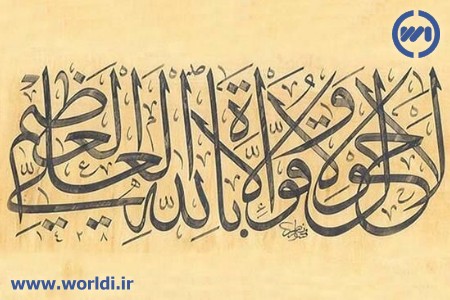 لا حول ولا قوة الا بالله العلي العظيم
١٤٢٨
www.worldi.ir